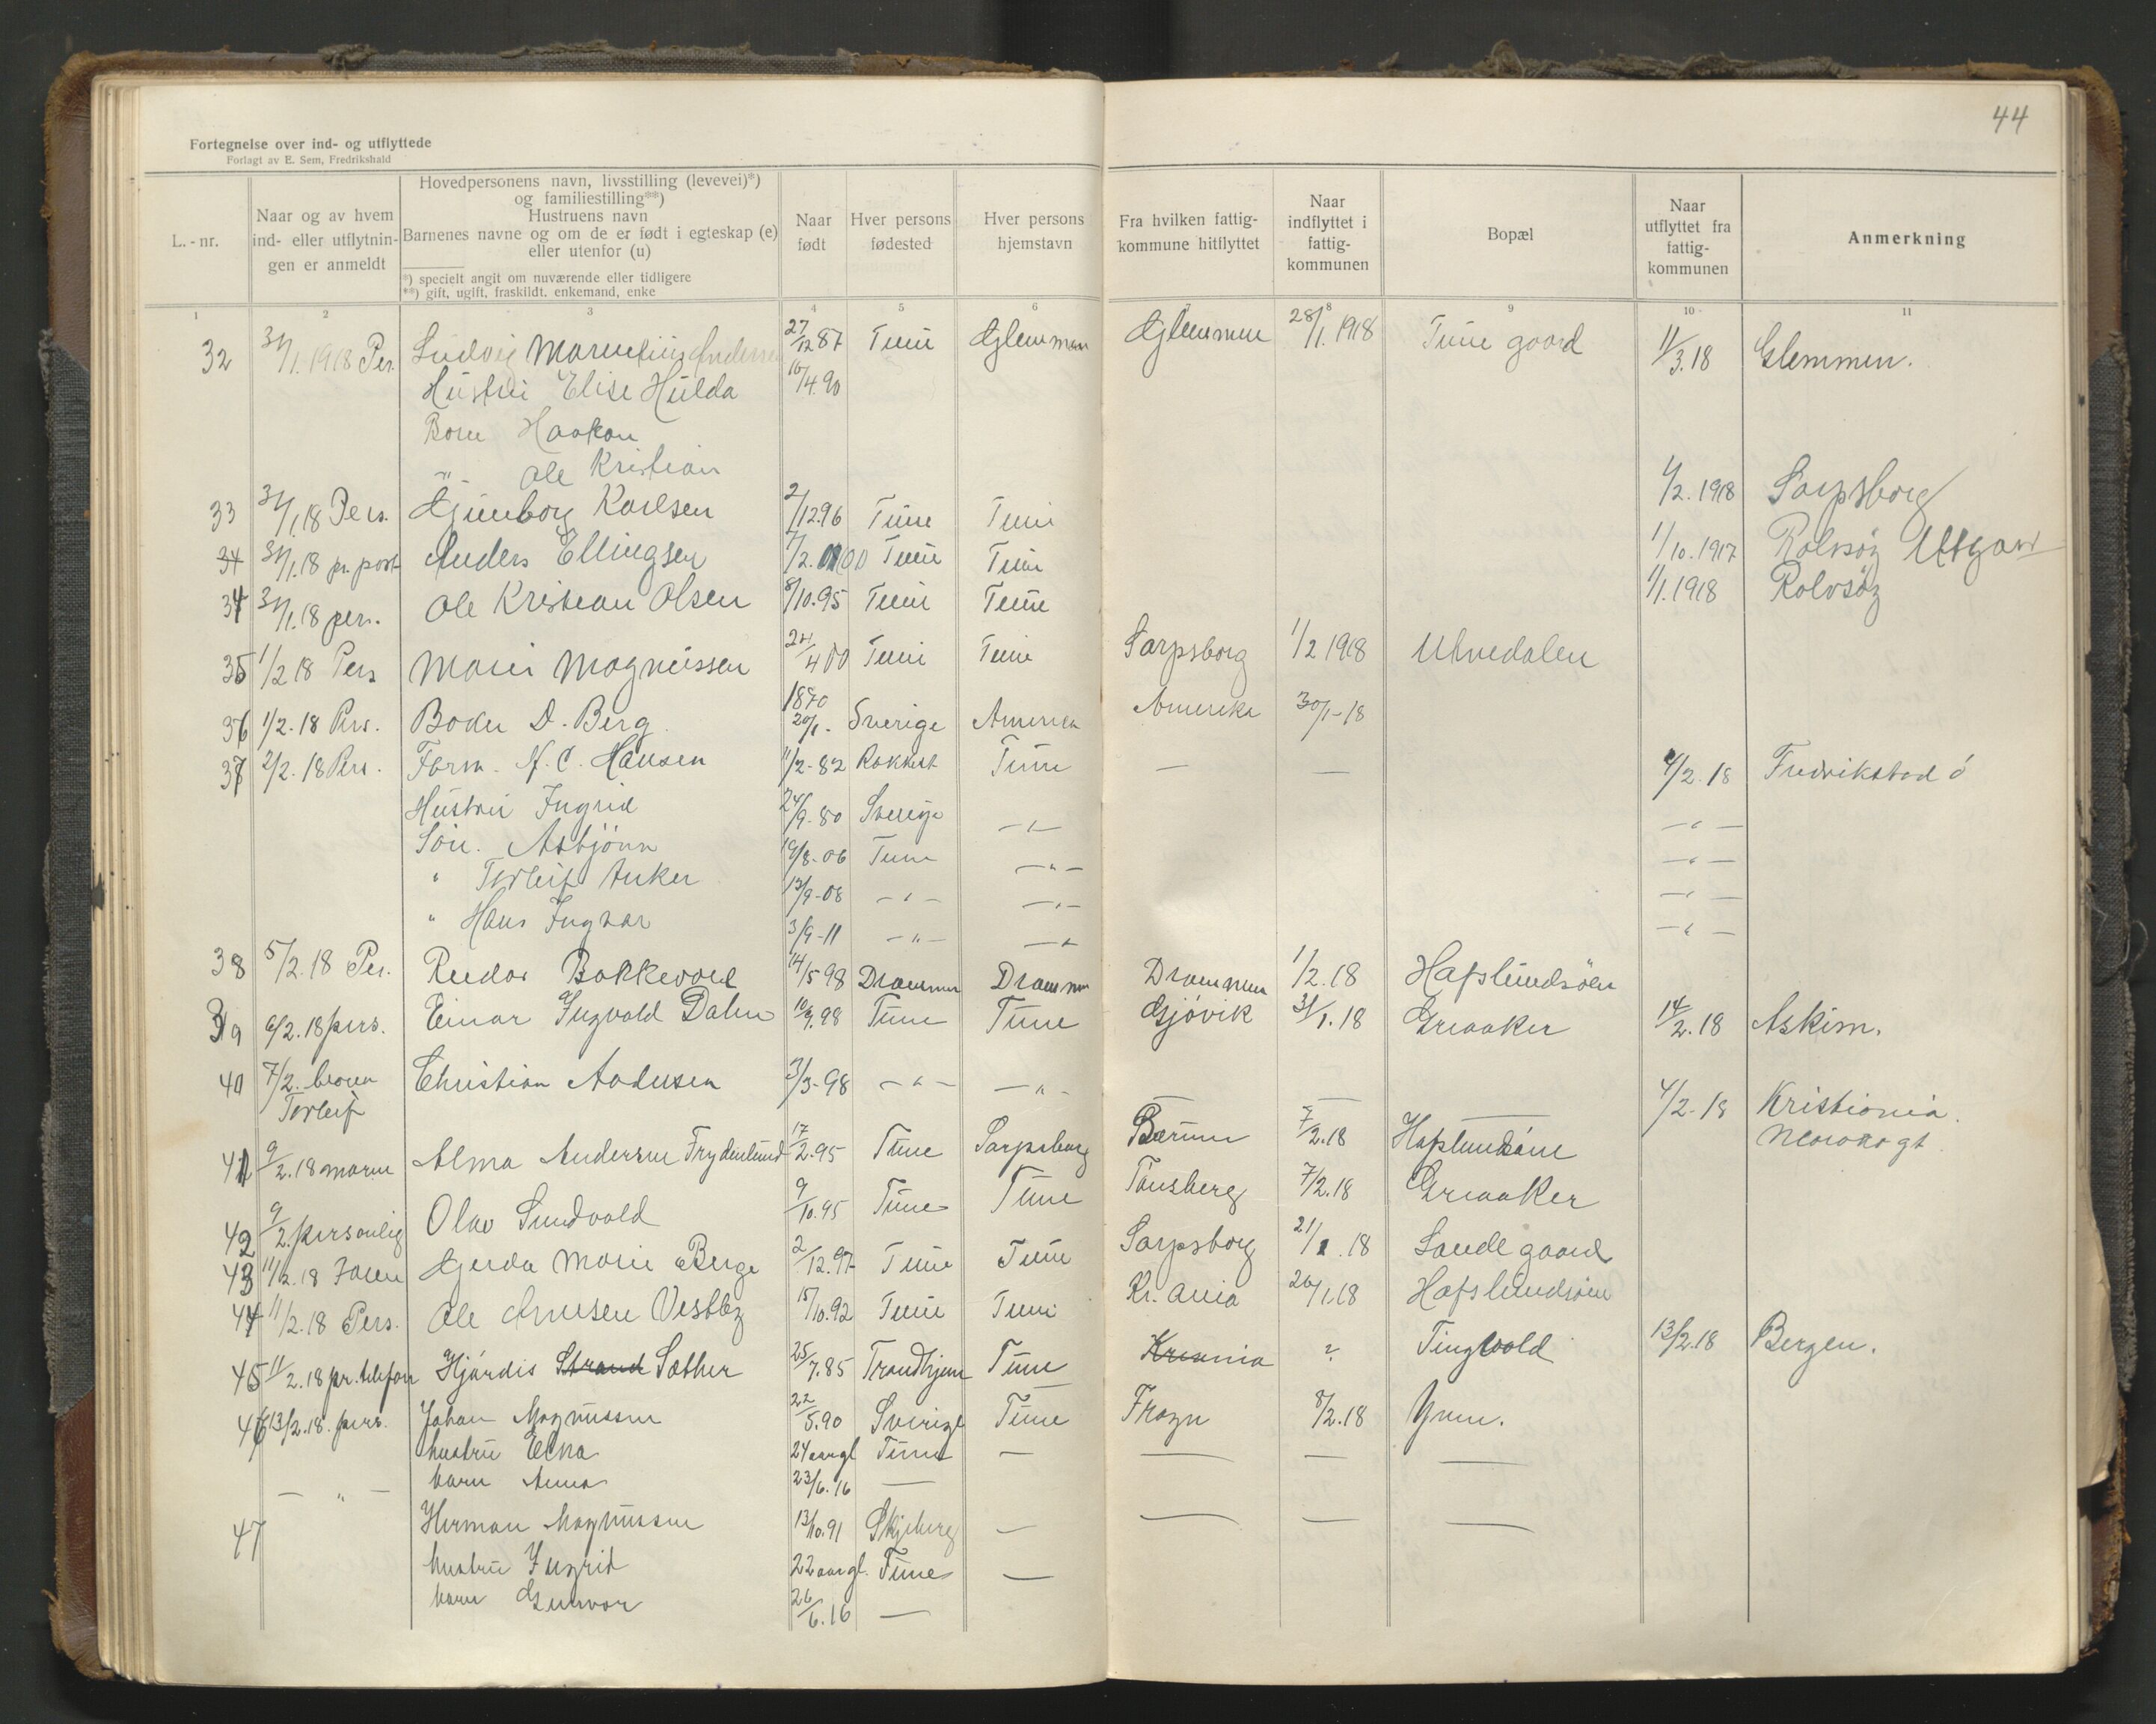 44
Fortegnelse over ind- og utflyttede
Forlagt av E. Sem, Fredrikshald
L.-nr.
Naar og av hvem ind- eller utflytnin-gen er anmeldt
Hovedpersonens navn, livsstilling (levevei)*)
og familiestilling**)
Hustruens navn
Barnenes navne og om de er født i egteskap (e)
eller utenfor (u)
*) specielt angit om nuværende eller tidligere
**) gift, ugift, fraskildt, enkemand, enke
Naar født
Hver persons fødested
Hver persons hjemstavn
Fra hvilken fattig-kommune hitflyttet
Naar indflyttet i fattig-kommunen
Bopæl
Naar utflyttet fra fattig-kommunen
Anmerkning
1 2 3 4 5 6 7 8 9 10 11
32 31/1.1918 Per. Ludvig Martinius Andersen 27/12 87 Tune Glemmen Glemmen 28/1.1918 Tune gaard 11/3.18 Glemmen.
Hustru Elise Hulda 10/4.90
Born Haakon
" Ole Kristian
33 31/1.18 Pers. Gunborg Karlsen 2/12.96 Tune Tune 1/2.1918 Sarpsborg
34 31/1.18 pr. post Anders Ellingsen 7/2. 00 Tune Tune 1/10.1917 Rolvsöy
34 31/1.18 per. Ole Kristian Olsen 8/10.95 Tune Tune 1/1.1918 Rolvsöy
35 1/2 18 Pers Marie Magnussen 24/4 00 Tune Tune Sarpsborg 1/2 1918 Ulvedalen
36 1/2.18 Pers. D. Berg 1870 20/1. Sverige Amerika Amerika 30/1-18
37 2/2.18 Pers. Form. N. C. Hansen 11/2-82 Rakkest Tune — — 4/2.18 Fredrikstad ö
Hustru Ingrid 24/9-80 Sverige — " — — " —
Sön. Asbjörn 19/8-06 Tune — " — — " —
" Torleif Anker 13/9-08 — " — — " — — " —
" Hans Ingvar 3/9-11 — " — — " — — " —
38 5/2.18 Per. Reidar Bakkevold 14/5 98 Drammen Drammen Drammen 1/2.18 Hafslundsöen
39 6/2.18 pers. Einar Ingvald Dahn 10/9.98 Tune Tune Gjövik 31/1.18 Greaaker 14/2.18 Askim.
40 7/2. broren Torleif Christian Andersen 3/3-98 — " — — " — — — 4/2-18 Kristiania.
41 9/2.18 Alma Andersen Frydenlund 17/2.95 Tune Sarpsborg Bærum 7/2.18 Hafslundsöen
42 9/2. personlig Olav Sundvold 9/10.95 Tune Tune Tönsberg 7/2.18 Greaaker
43 11/2.18 Gerda Marie Berge 2/12.97 Tune Tune Sarpsborg 21/1.18 Lande gaard
44 11/2.18 Pers. Ole Arnesen Vestby 15/10.92 Tune Tune Kr.ania 26/1.18 Hafslundsöen
45 11/2.18 pr. telefon Hjördis Strand Sæther 25/7.85 Trondhjem Tune Krania ? Tingvold 13/2.18 Bergen.
46 13/2.18. pers. Johan Magnussen 22/5.90 Sverige Tune Frogn 8/2.18 Ynm.
hustru Elna 24 aargl Tune — — — —
— " — barn Anna 23/6.16 —
47 Herman Magnussen 13/10.91 Skjeberg — — — —
hustru Ingrid 22 aargl. Tune —
barn Gunvor 26/6.16 —